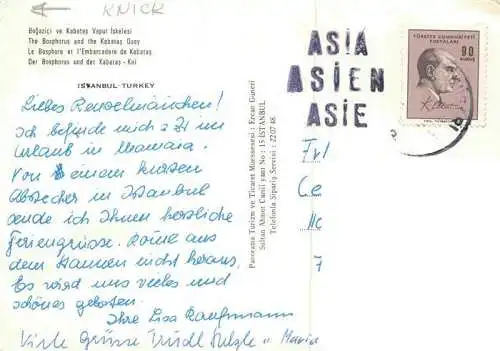 KNICK
Boğaziçi ve Kabataş Vapur İskelesi
The Bosphorus and the Kabataş Quay
Le Bosphore et l'Embarcadere de Kabataş
Der Bosphorus und der Kabataş - Kai
ISTANBUL - TURKEY
Liebes
Ich befinde mich z. Zt im
Urlaub in Mamaia.
Von einem kurzen
Abstecher in Istanbul
sende ich Ihnen herzliche
Feriengrüsse. Komme aus
dem Staunen nicht heraus.
Es wird uns vieles und
schönes geboten.
Ihre Lisa Kaufmann
Viele Grüsse Trudl "
Panorama Turizm ve Ticaret Müessesesi : Ercan Güneri
Sultan Ahmet Camii yanı No : 15 İSTANBUL
Telefonla Sipariş Servisi : 22 07 48
ASIA
ASIEN
ASIE
TÜRKİYE CUMHURİYETİ
POSTALARI
90
KURUŞ
Frl
Ce
7